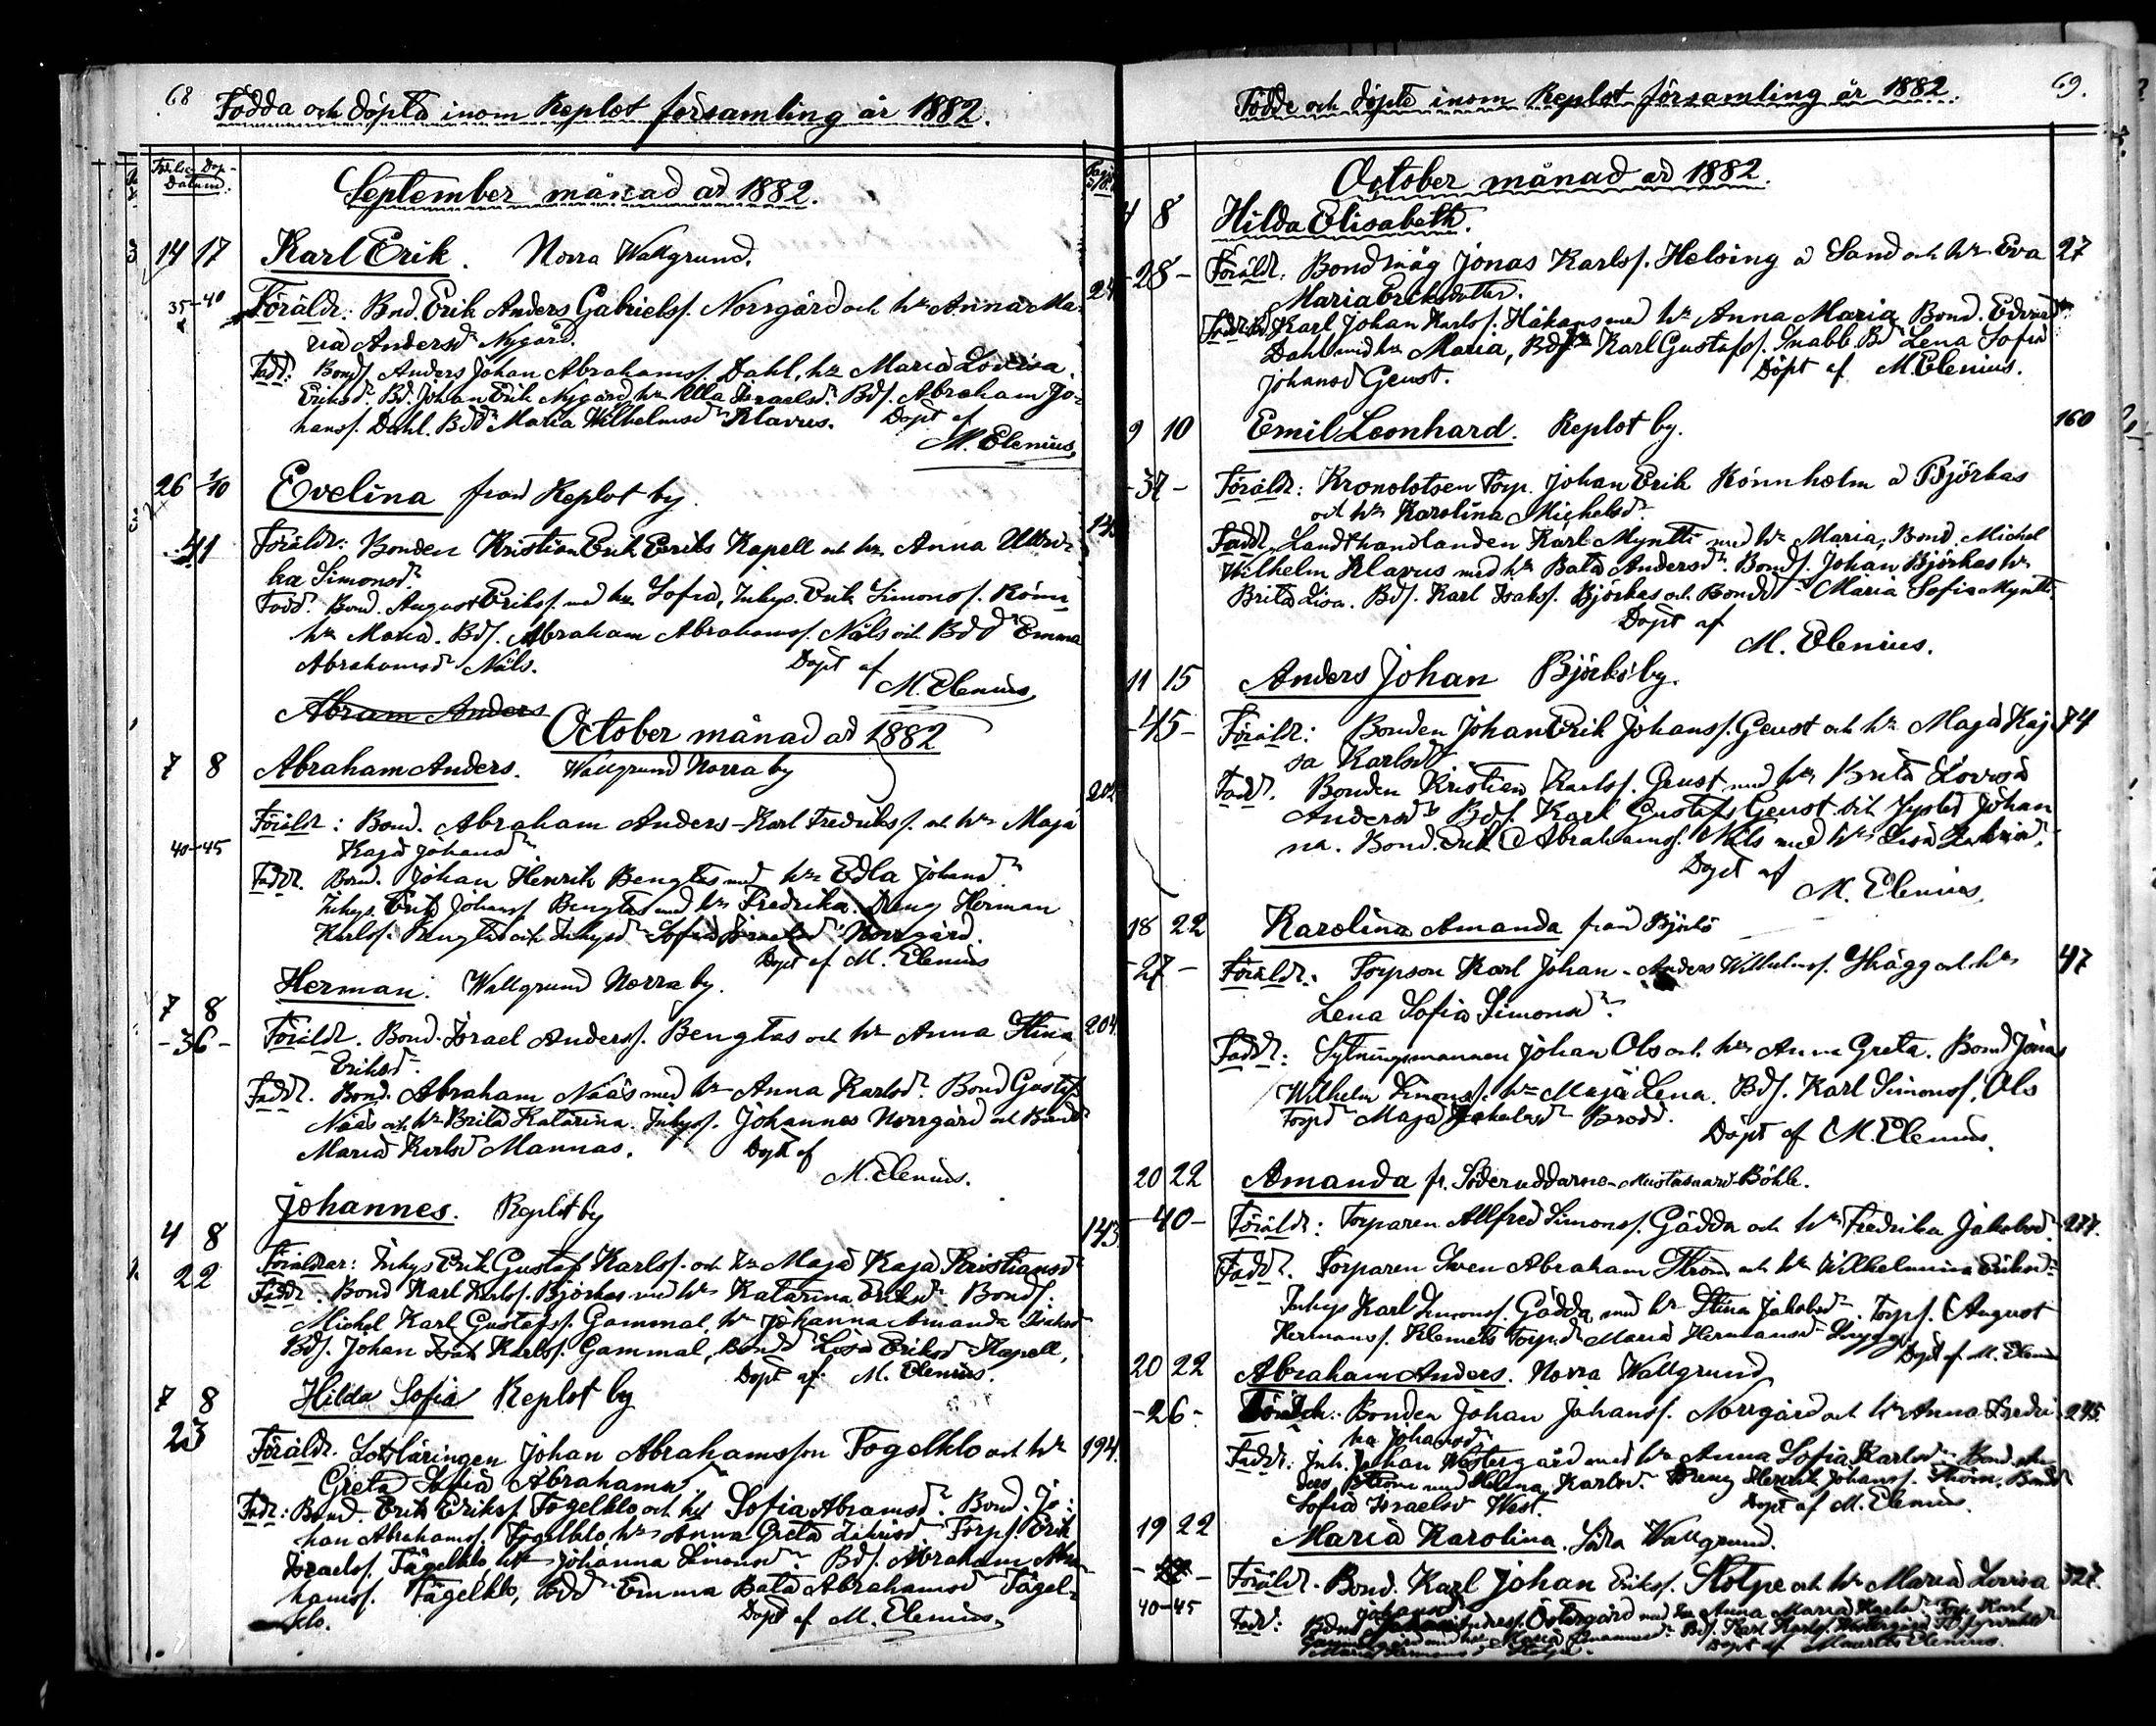 68
Födda och döpta inom Replot församling år 1882.
Födelse- Dop-
Datum.
September månad år 1882.
14 17 Karl Erik. Norra Wallgrund.
35-40 Föräldr: Bnd. Erik Anders Gabrielsf. Norrgård och hn Anna Ma-
ria Andersdr Nygård.
Fadd: Bondf Anders Johan Abrahamsf Dahl, hn Maria Lovisa
Eriksdr. Bd. Johan Erik Nygård, hn Ulla Israelsdr. Bdf. Abraham Jo-
hansf. Dahl. Bddr Maria Wilhelmsdr Klavus. Döpt af
M. Elenius.
26 1/10 Evelina från Replot by.
41 Föräldr: Bonden Kristian Erik Eriks Kapell och hn Anna Ulri-
ka Simonsdr
Fadd. Bond. August Eriksf. med hn Sofia, Inhys. Erik Simonsf. Rönn
hn Maria. Bdf. Abraham Abrahamsf. Näls och Bddr Emma
Abrahamsdr Näls. Döpt af
M. Elenius.
Abram Anders
October månad år 1882
7 8 Abraham Anders. Wallgrund Norra by
202
Föräldr: Bond. Abraham Anders-Karl Fredriksf. och hn Maja
40-45 Kajsa Johansdr
Fadd. Bond. Johan Henrik Bengtas med hn Edla Johansdr
Inhys. Erik Johansf Bengtas med hn Fredrika. Dreng Herman
Karlsf. Bengtas och Inhysdr Sofia Israelsdr Norrgård.
Döpt af M. Elenius
Herman. Wallgrund Norra by.
7 8
-36- Föräldr. Bond. Israel Andersf. Bengtas och hn Anna Stina 204.
Eriksdr.
Fadd. Bond. Abraham Nääs med hn Anna Karlsdr. Bond Gustaf
Nääs och hn Brita Katarina. Inhysf. Johannes Norrgård och Bondd
Maria Karlsd Mannas. Döpt af
M. Elenius.
Johannes. Replot by
4 8 143
22 Föräldrar: Inhys Erik Gustaf Karlsf. och hn Maja Kajsa Kristiansdr
Fadd. Bond Karl Karlsf. Björkas med hn Katarina Eriksdr Bondf.
Michel Karl Gustafsf. Gammal, hn Johanna Amanda Isaksdr
Bdf. Johan Isak Karlsf. Gammal, Bondd Lisa Eriksd Kapell,
Döpt af M. Elenius.
7 8 Hilda Sofia Replot by
23 Föräldr. Lotslärlingen Johan Abrahamsson Fogelklo och hn 194.
Greta Sofia Abrahamsdr
Fadr: Bond. Erik Eriksf. Fogelklo och hn Sofia Abramsdr. Bond. Jo-
han Abrahamsf. Fogelklo hn Anna Greta Zakrisdr Torpf. Erik
Israelsf. Fågelklo, hn Johanna Simonsdr. Bdf. Abraham Abra-
hamsf. Fågelklo, Bddr Emma Beata Abrahamsdr Fågel-
klo. Döpt af M. Elenius.
69.
Födde och döpte inom Replot församling år 1882.
October månad år 1882.
4 8 Hilda Elisabeth.
-28- Föräldr: Bondmåg Jonas Karlsf. Helsing å Sand och hn Eva 27
Maria Eriksdotter.
Fadd. Bd Karl Johan Karlsf. Håkans med hn Anna Maria Bond. Edvard
Dahl med hn Maria, Bdf Karl Gustafsf. Snabb. Bd Lena Sofia
Johansd Geust. Döpt af M. Elenius.
9 10 Emil Leonhard. Replot by. 160
-37- Föräldr: Kronolotsen Torp. Johan Erik Rönnholm å Björkas
och hn Karolina Michelsdr
Fadd. Landthandlanden Karl Myntti med hn Maria, Bond. Michel
Wilhelm Klavus med hn Beata Andersdr. Bondf. Johan Björkas hn
Brita Lisa. Bdf. Karl Isaksf. Björkas och Bondd Maria Sofia Myntti.
Döpt af
M. Elenius.
11 15 Anders Johan Björkö by.
-45- Föräldr: Bonden Johan Erik Johansf. Geust och hn Maja Kaj- 74
sa Karlsdr
Fadd. Bonden Kristian Karlsf. Geust med hn Brita Lovisa
Andersdr Bdf. Karl Gustafs Geust och Johan
na. Bond. Erik Abrahamsf. Nils med hn Lisa
Döpt af
M. Elenius.
18 22 Karolina Amanda från Björkö
-27- Föräldr. Torpson Karl Johan-Anders Wilhelmsf. Skägg och hn 47
Lena Sofia Simonsdr.
Fadd: Sytningsmannen Johan Ols och hn Anna Greta. Bond Jonas
Wilhelm Simonsf. hn Maja Lena. Bdf. Karl Simonsf. Ols
Torpd Maja Jakobsdr Brodd.
Döpt af M. Elenius.
20 22 Amanda fr. Söderuddarne-Mustasaari-Böhle.
-40- Föräldr: Torparen Allfred Simonsf. Gädda och hn Fredrika Jakobsdr. 277.
Fadd. Torparen Sven Abraham Ström och hn Wilhelmina Eriksdr
Inhys Karl Simonsf. Gädda med hn Stina Jakobsdr Torpf. August
Hermansf. Klemets Torp.dr Maria Hermansdr Snygg
Döpt af M. Elenius
20 22 Abraham Anders. Norra Wallgrund
-26- Föräldr: Bonden Johan Johansf. Norrgård och hn Anna Fredri- 245.
ka Johansdr
Fadd: Inh. Johan Westergård med hn Anna Sofia Karlsdr Bond. An-
ders Ström med Helena Karlsdr. Dreng Henrik Johansf. Thors. Bondd
Sofia Israelsdr West. Döpt af M. Elenius.
19 22 Maria Karolina. Södra Wallgrund.
Föräldr. Bond. Karl Johan Eriksf. Stolpe och hn Maria Lovisa 327.
40-45 Johansdr.
Fadd: Bdn Andersf. Östergård med hn Anna Maria Karlsdr Torp. Karl
med hn Maria Bdf. Karl Karlsf. Westergård
Maria Hermansdr Döpt af Mauritz Elenius.